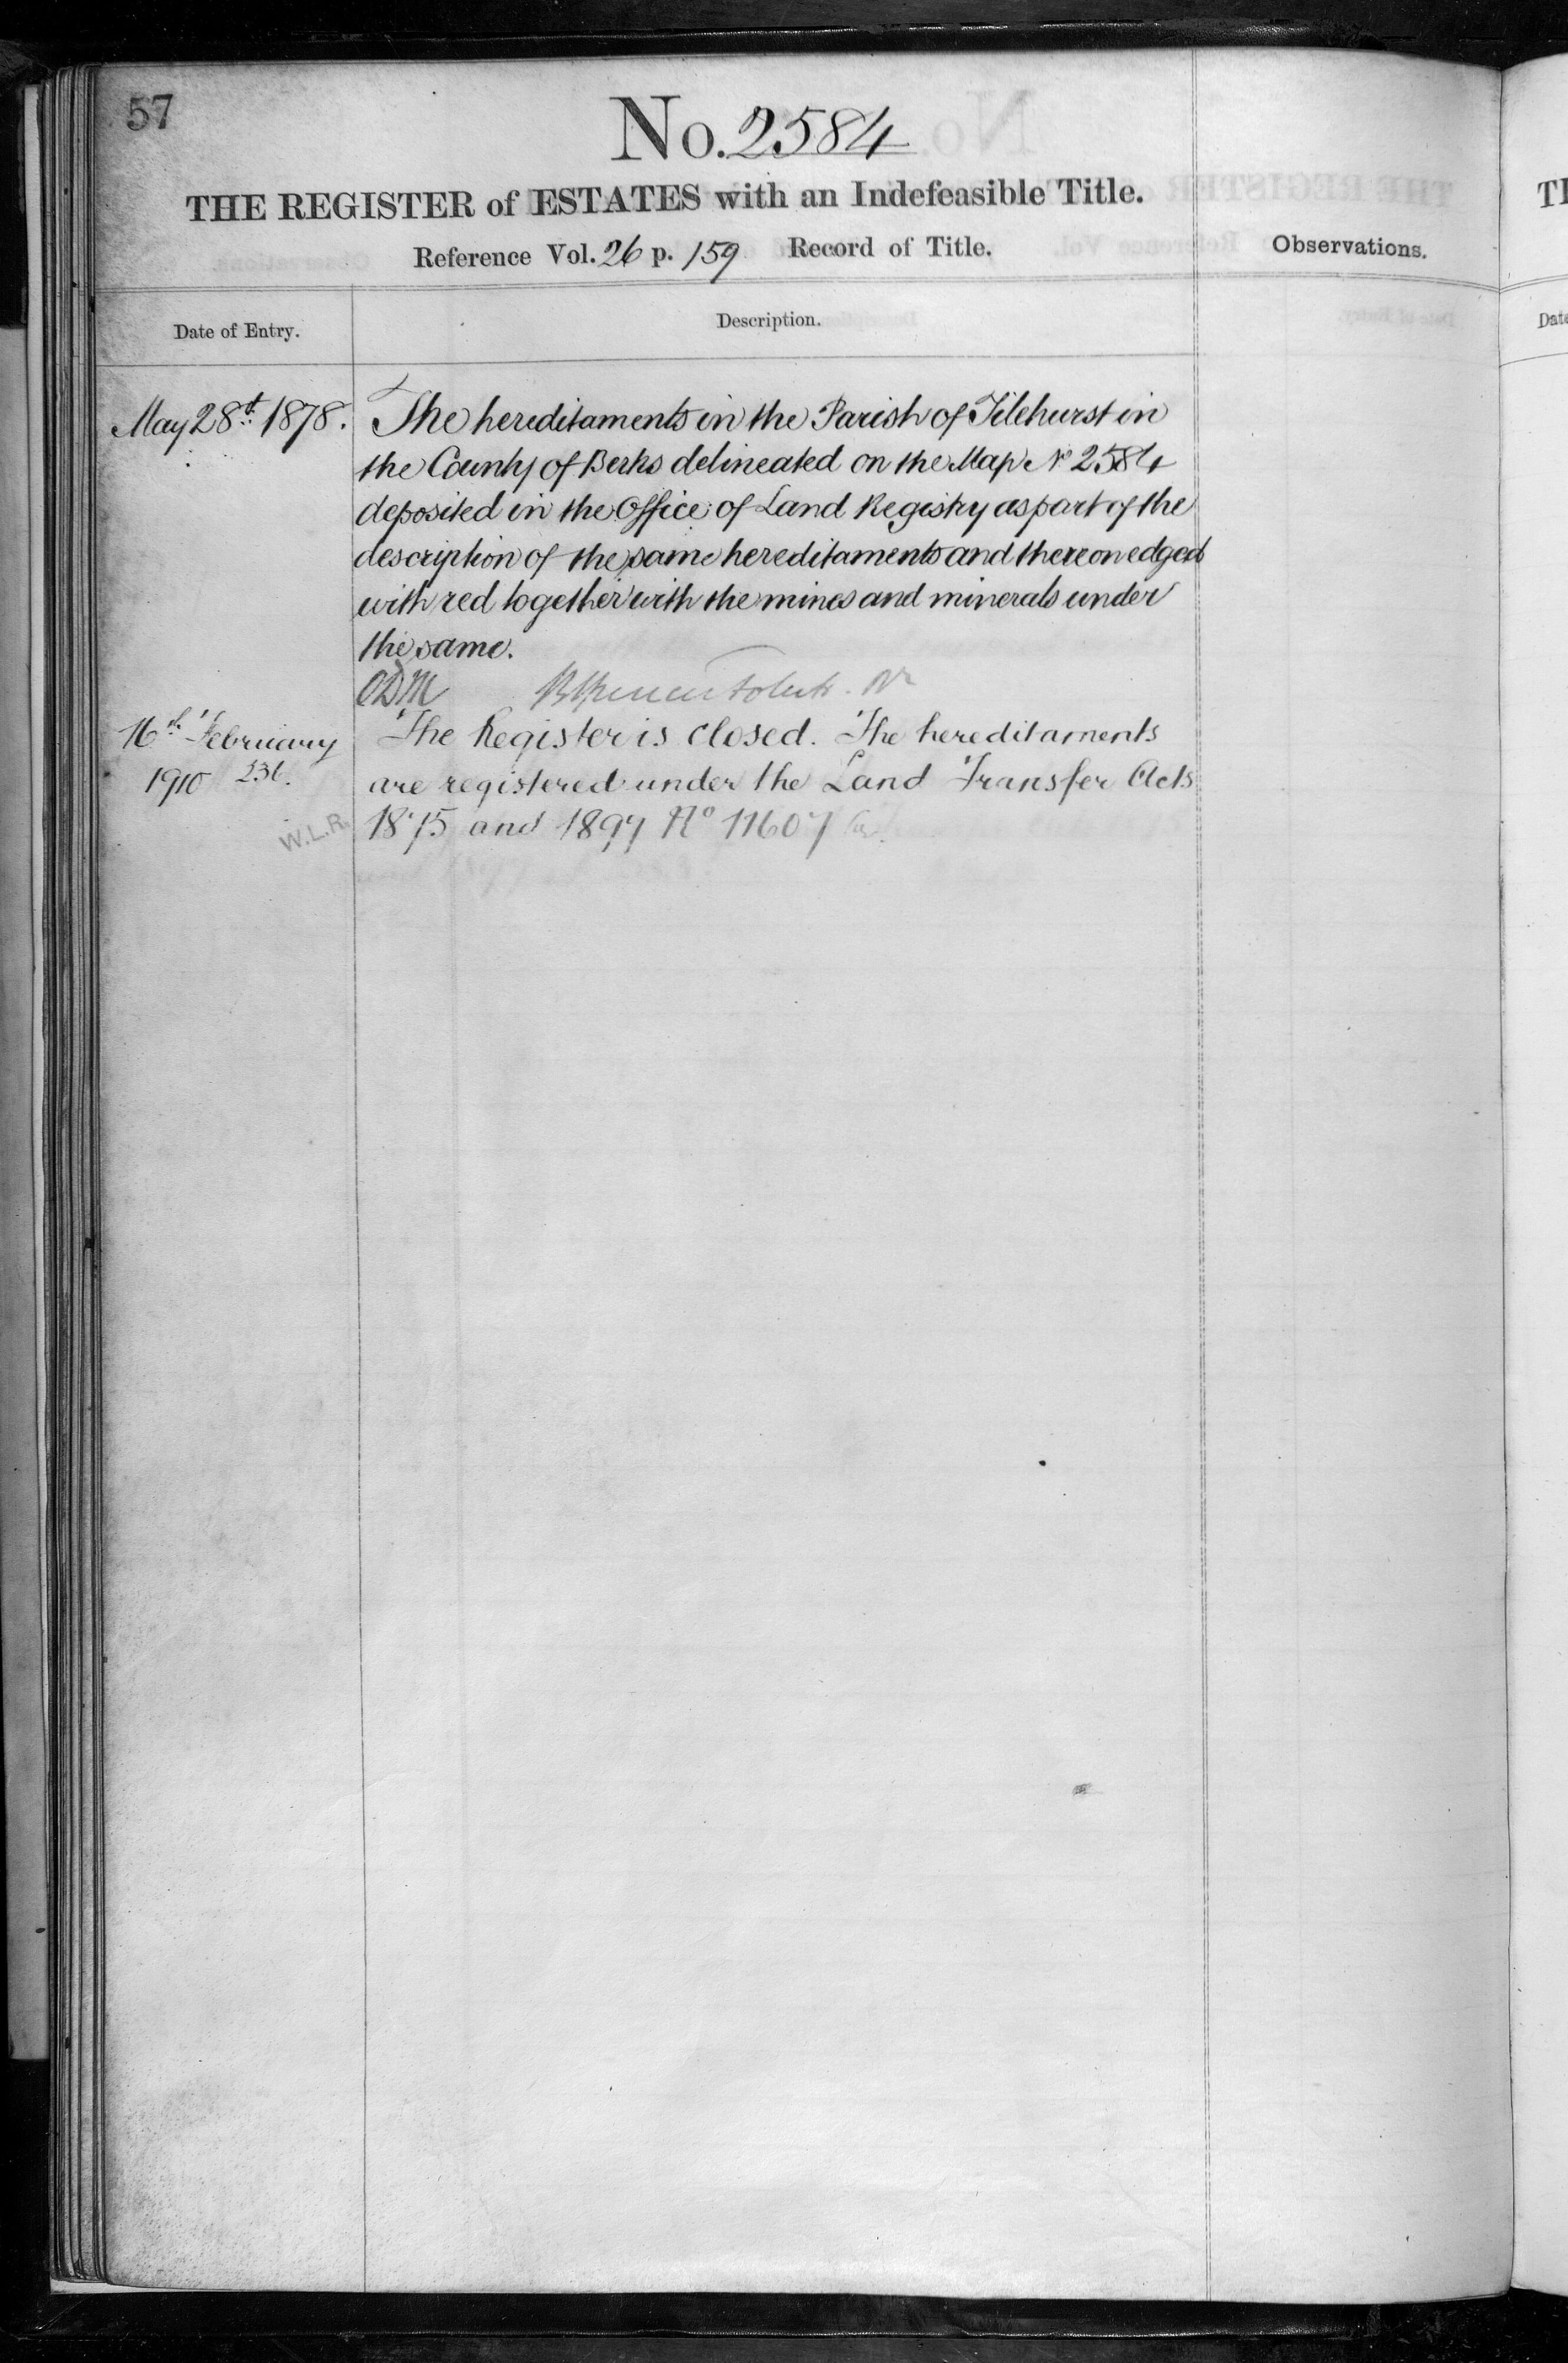 57
No. 2584
THE REGISTER of ESTATES with an Indefeasible Title.
Reference Vol. 26 p. 159 Record of Title.
Observations.
Date of Entry.
Description.
May 28th 1878.
The hereditaments in the Parish of Tilehurst in
the County of Berks delineated on the Map No 2584
deposited in the Office of Land Registry as part of the
description of the same hereditaments and thereon edged
with red together with the mines and minerals under
the same.
16th February
1910 236.
W.L.R.
The Register is closed. The hereditaments
are registered under the Land Transfer Acts
1875 and 1897 No 11607